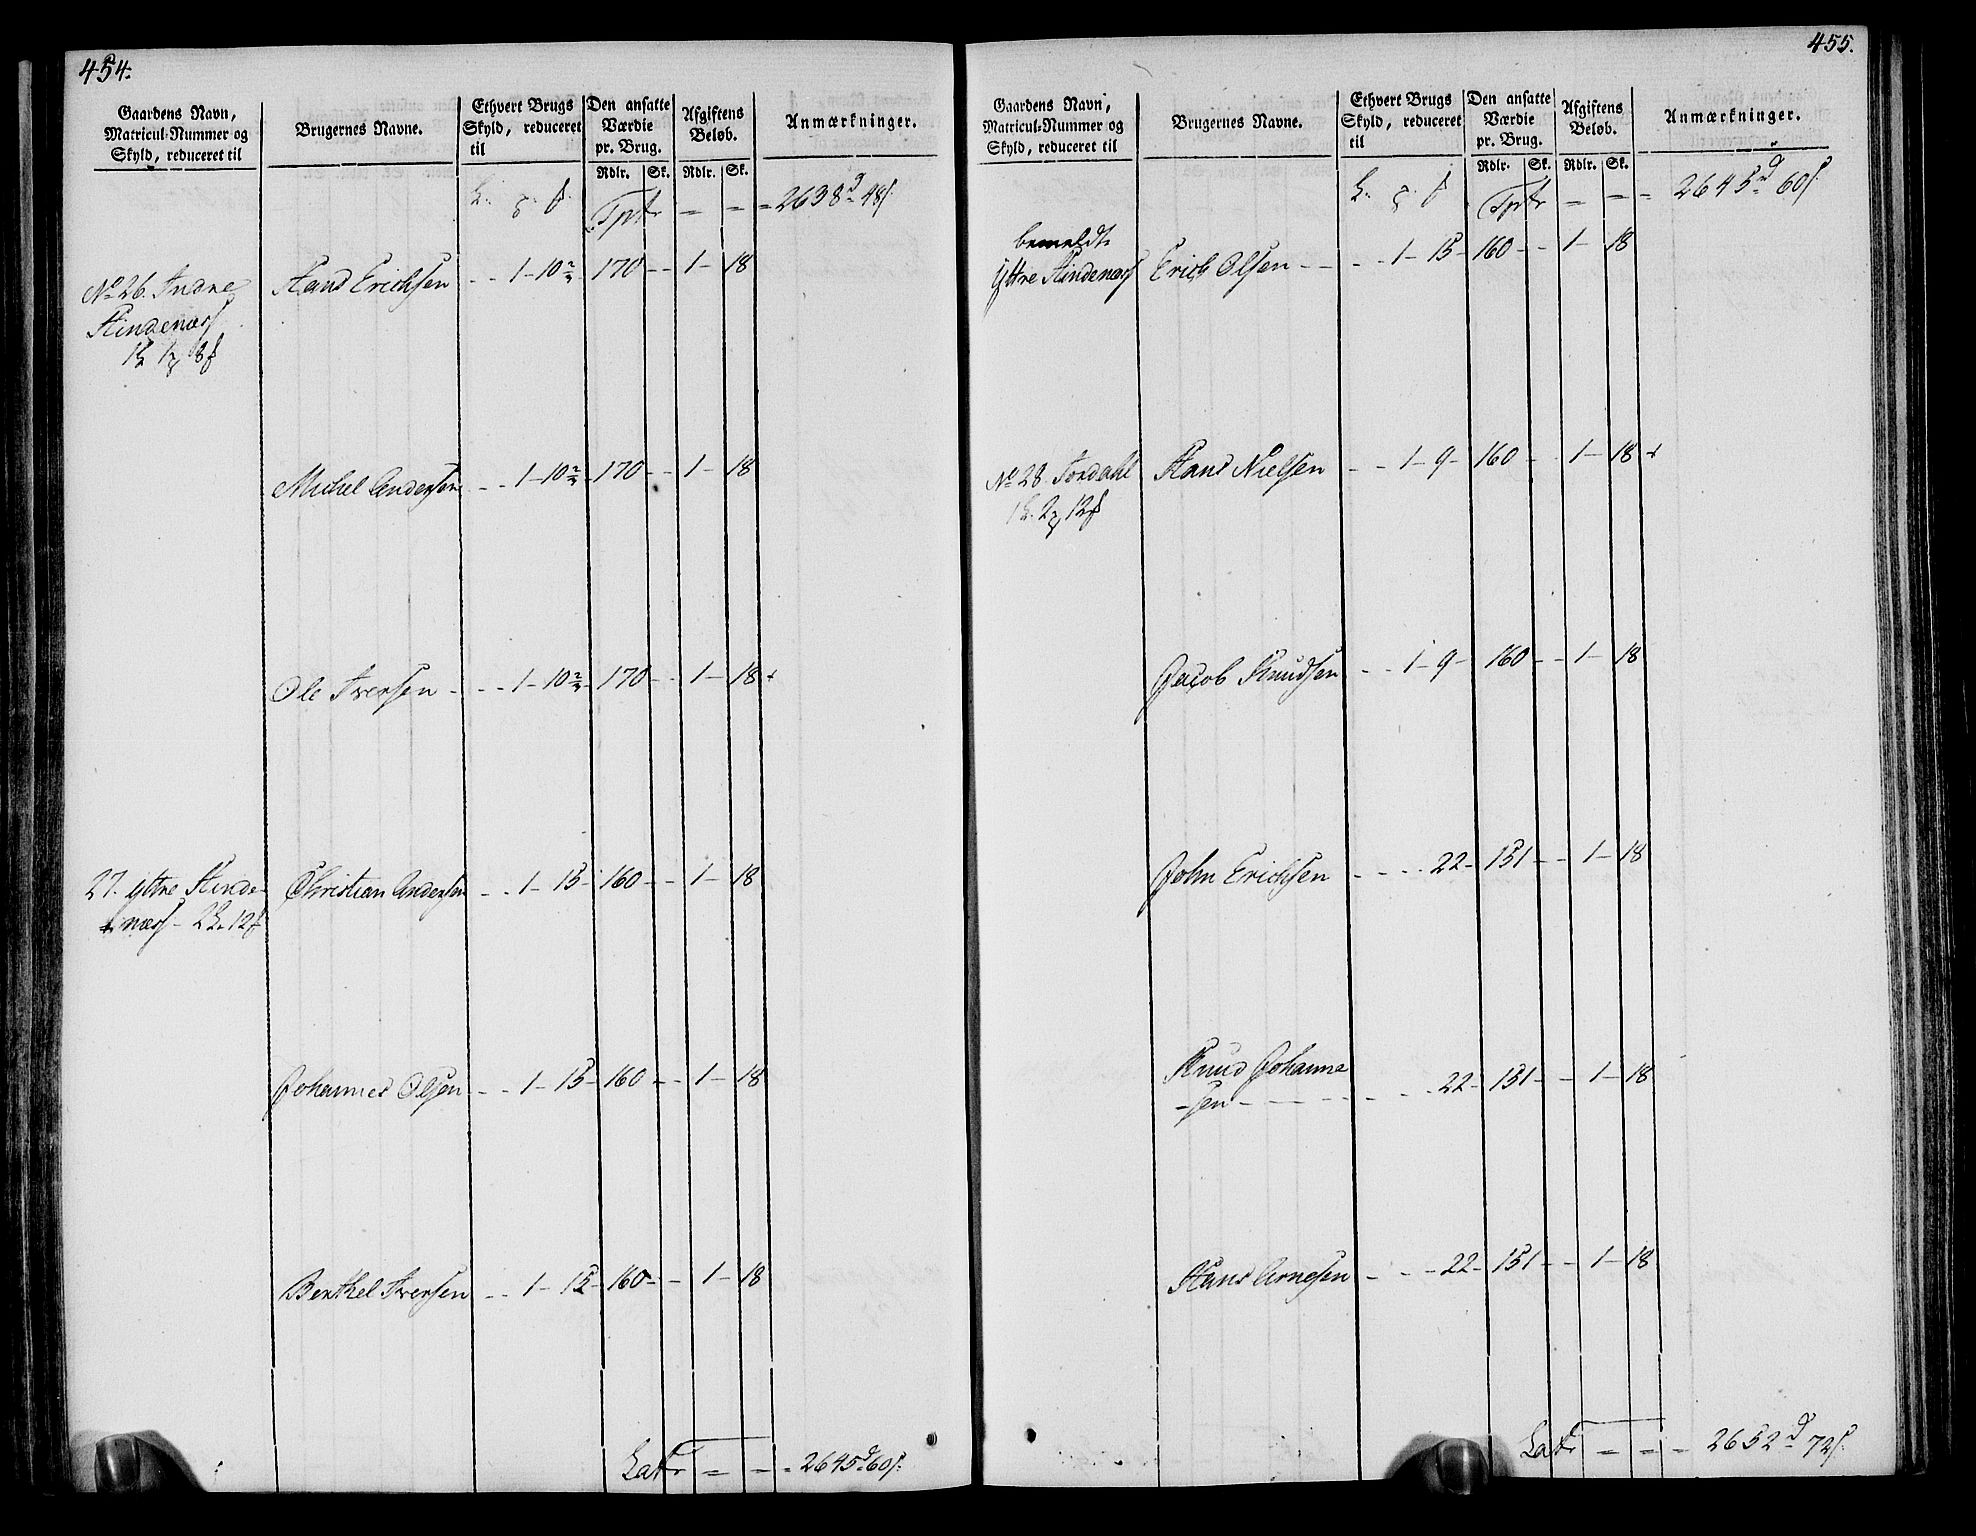 454.
Gaardens Navn, Matricul-Nummer og Skyld, reduceret til
Brugernes Navne.
Ethvert Brugs Skyld, reduceret til
Den ansatte Værdie pr. Brug.
Afgiftens Beløb.
Anmærkninger.
Rdlr. Sk. Rdlr. Sk.
Tptr = = = 2638 d 48 s.
No 26. Indre Hans Erichsen - - 1 - 10 2/3 170 - - 1 - 18
Hindenæss
1 8
Michel Andersen - - 1 - 10 2/3 170 - - 1 - 18
Ole Iversen - - - 1 - 10 2/3 - 170 - - 1 - 18 +
27. Yttre Hinde- Christian Andersen - - 1 - 15 - 160 - - 1 - 18
næss - 2 12
Johannes Olsen - - 1 - 15 - 160 - - 1 - 18
Berthel Iversen - - 1 - 15 - 160 - - 1 - 18
Latr = = = 2645 d 60 s.
455.
Gaardens Navn, Matricul-Nummer og Skyld, reduceret til
Brugernes Navne.
Ethvert Brugs Skyld, reduceret til
Den ansatte Værdie pr. Brug.
Afgiftens Beløb.
Anmærkninger.
Rdlr. Sk. Rdlr. Sk.
Tptr = = = 2645 d 60 s.
bemeldte
Yttre Hindenæss Erich Olsen - - - - 1 - 15 - 160 - - 1 - 18
No 28. Fordahl Hans Nielsen - - 1 - 9 - 160 - 1 - 18 +
1 2 12
Jacob Knudsen - - 1 - 9 - 160 - - 1 - 18
John Erichsen - - - - 22 - 151 - - 1 - 18
Knud Johanne
-sen - - - - - - 22 - 151 - - 1 - 18
Hans Arnesen - - - 22 - 151 - - 1 - 18
Latr = = = 2652 d 72 s.